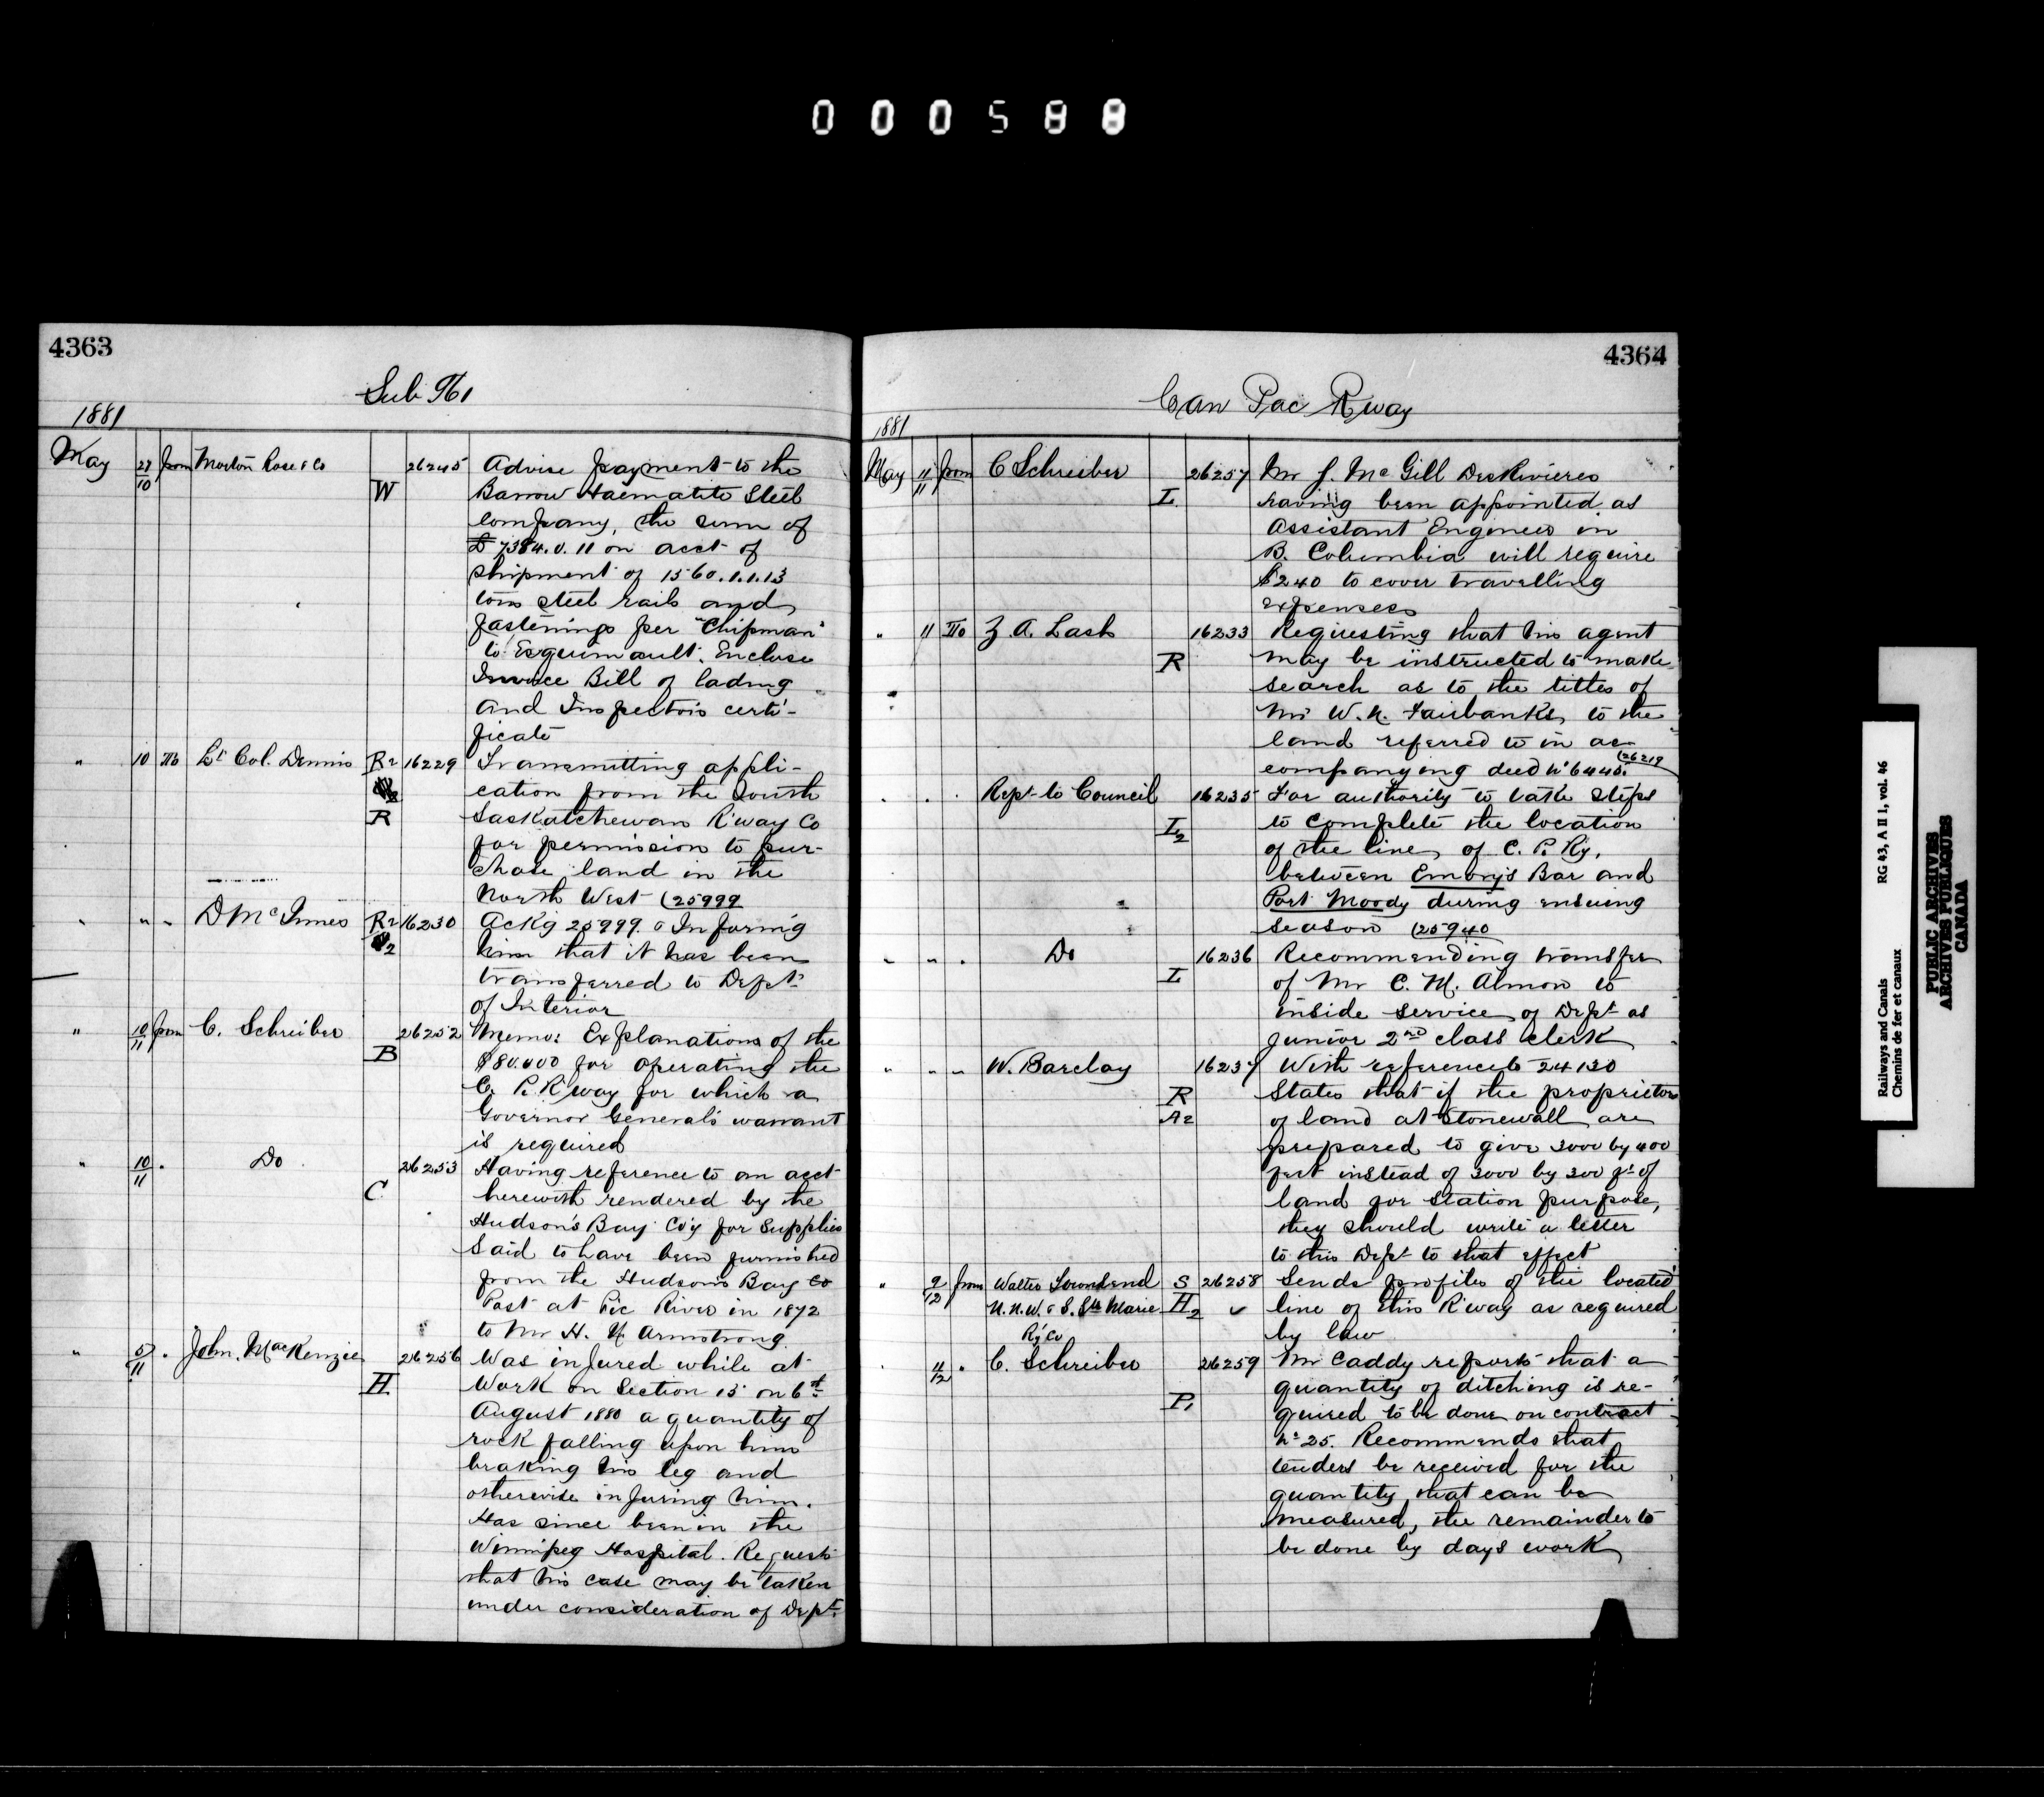 000588
4363
Sub No 1
1881
May 27/10 from Morton Rose & Co W 26245 Advise payment to the
Barrow Haematite Steel
Company, the sum of
£7384.0.11 on acct of
shipment of 1560.1.1.13
tons steel rails and
fastenings per "Chipman"
to Esquimault. Enclose
Invoice Bill of lading
and Inspectors certi-
ficate
" 10 To Lt Col. Dennis R2 R 16229 Transmitting appli-
cation from the South
Saskatchewan R'way Co
for permission to pur-
chase land in the
North West (25999
" " " D McInnes R2 16230 Ackg 25999 & Informg
him that it has been
transferred to Dept
of Interior
" 10/11 from C. Schreiber B 26252 Memo: Explanations of the
$80.000 for operating the
C. P. R'way for which a
Governor General's warrant
is required
" 10/11 " Do C 26253 Having reference to an acct
herewith rendered by the
Hudson's Bay Co'y for supplies
said to have been furnished
from the Hudson's Bay Co
Post at Pic River in 1872
to Mr H. N. Armstrong
" 5/11 " John MacKenzie H. 26256 Was injured while at
work on Section 15 on 6th
August 1880 a quantity of
rock falling upon him
braking his leg and
otherwise injuring him.
Has since been in the
Winnipeg Hospital. Requests
that his case may be taken
under consideration of Dept.
4364
Can Pac Rway
1881
May 11/11 from C Schreiber L 26257 Mr J. McGill DesRivieres
having been appointed as
Assistant Engineer in
B. Columbia will require
$240 to cover travelling
expenses
" 11 To Z. A. Lash R 16233 Requesting that his agent
may be instructed to make
search as to the titles of
Mr W. N. Fairbanks to the
land referred to in ac-
companying deed No 6445. (26219
" " " Rept to Council L2 16235 For authority to take steps
to complete the location
of the line of C. P. Ry.
between Emory's Bar and
Port Moody during ensuing
season (25940
" " " Do L 16236 Recommending transfer
of Mr C. M. Almon to
inside service of Dept as
junior 2nd class clerk
" " " W. Barclay R A2 16237 With reference to 24130
States that if the proprietors
of land at Stonewall are
prepared to give 3000 by 400
feet instead of 3000 by 300 ft of
land for station purpose,
they should write a letter
to this Dept to that effect
" 9/12 from Walter Townsend S H2 26258 Sends profiles of the located
N. N. W. & S. Ste Marie line of this R'way as required
Ry Co by law
" 11/12 " C. Schreiber P1 26259 Mr Caddy reports that a
quantity of ditching is re-
quired to be done on contract
No 25. Recommends that
tenders be received for the
quantity that can be
measured, the remainder to
be done by days work
Railways and Canals RG 43, A II 1, vol. 46
Chemins de fer et canaux
PUBLIC ARCHIVES
ARCHIVES PUBLIQUES
CANADA